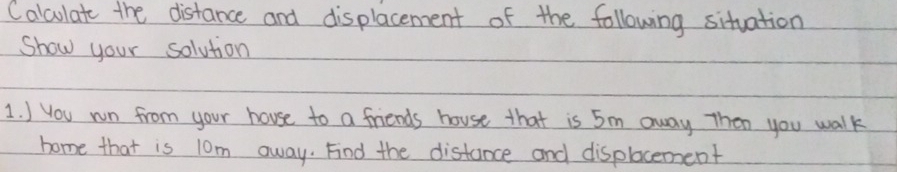 Calculate the distance and displacement of the following situation
Show your solution
1.) You run from your house to a friends house that is 5m away Then you walk
home that is 10m away. Find the distance and displacement